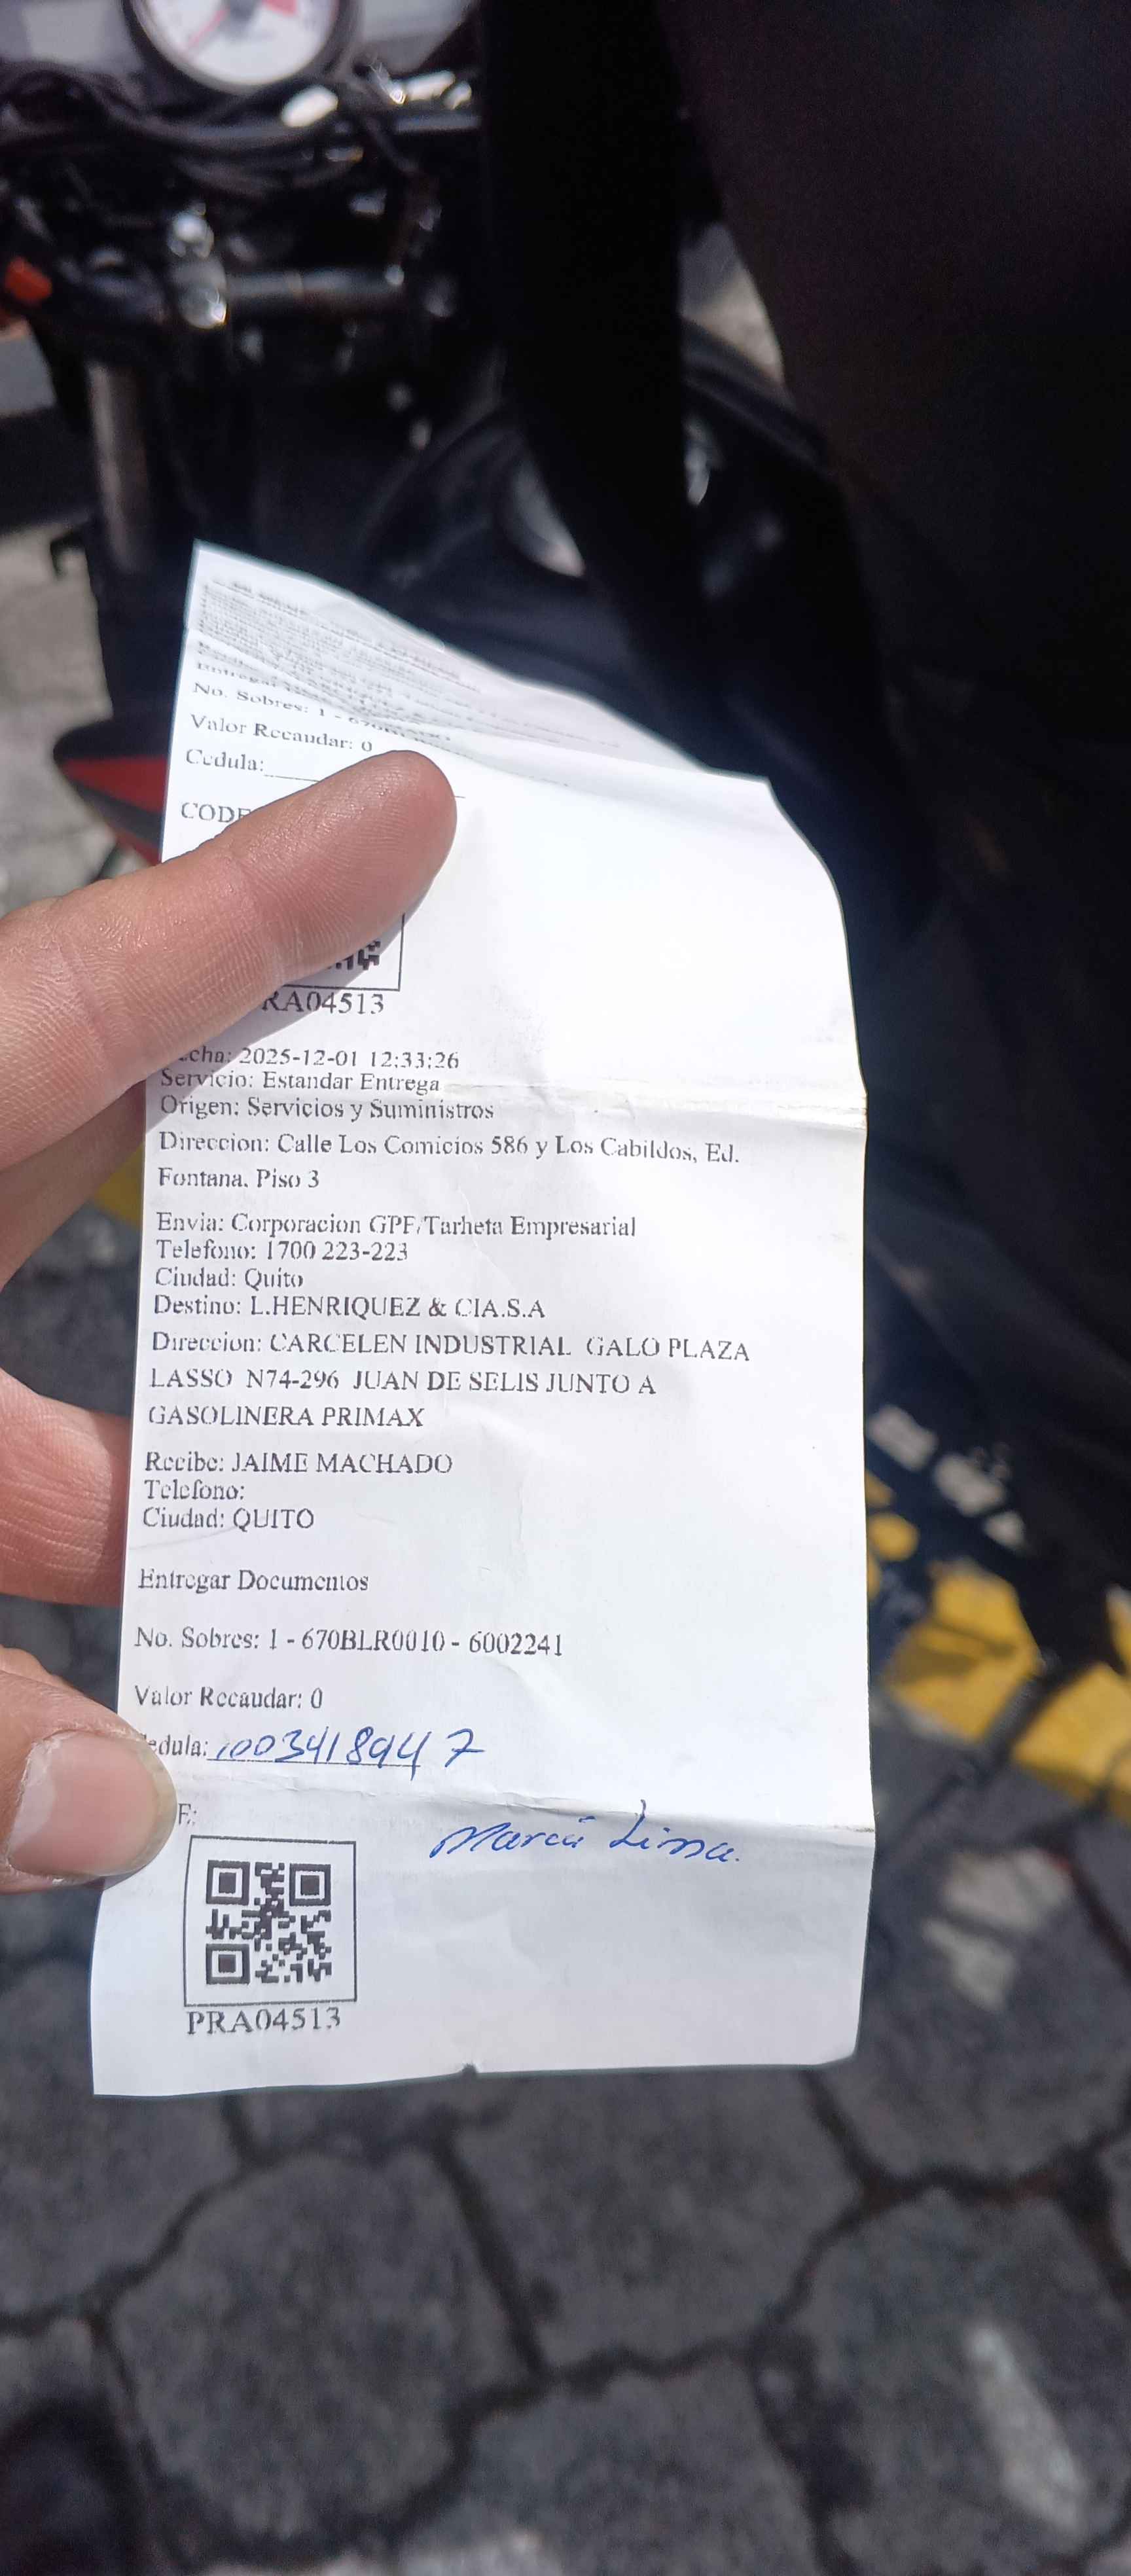 No. Sobres: 1 -
Valor Recaudar: 0
Cedula:
CODE
RA04513
cha: 2025-12-01 12:33:26
Servicio: Estandar Entrega
Origen: Servicios y Suministros
Direccion: Calle Los Comicios 586 y Los Cabildos, Ed.
Fontana. Piso 3
Envia: Corporacion GPF/Tarheta Empresarial
Telefono: 1700 223-223
Ciudad: Quito
Destino: L.HENRIQUEZ & CIA.S.A
Direccion: CARCELEN INDUSTRIAL GALO PLAZA
LASSO N74-296 JUAN DE SELIS JUNTO A
GASOLINERA PRIMAX
Recibe: JAIME MACHADO
Telefono:
Ciudad: QUITO
Entregar Documentos
No. Sobres: 1 - 670BLR0010 - 6002241
Valor Recaudar: 0
edula: 1003418947
E:
Lima.
PRA04513